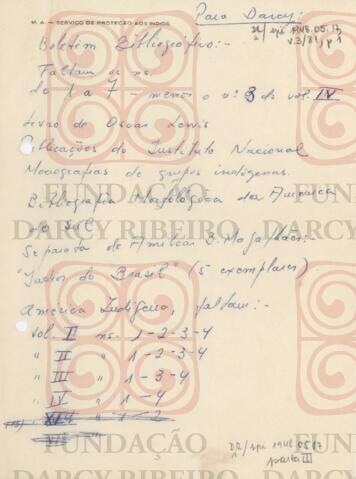 Para Darcy:
M. A. — SERVIÇO DE PROTEÇÃO AOS ÍNDIOS
DR/spi 1948.05.17
v.3/81, p1
Boletim Bibliográfico:-
Faltam os ns.
do 1 a 7 - menos o nº 3 do vol. IV
Livro de Oscar Lewis
Publicações do Instituto Nacional
Monografias de grupos indígenas.
Bibliografia da America
do Sul
Separata de Amilcar B. Magalhães:-
"Indios do Brasil" (5 exemplares)
América Indígena, faltam:-
vol. I ns. 1-2-3-4
" II " 1-2-3-4
" III " 1-3-4
" IV " 1-4
" 1-2
FUNDAÇÃO
DARCY RIBEIRO
DR/spi 1948.05.17
pasta III